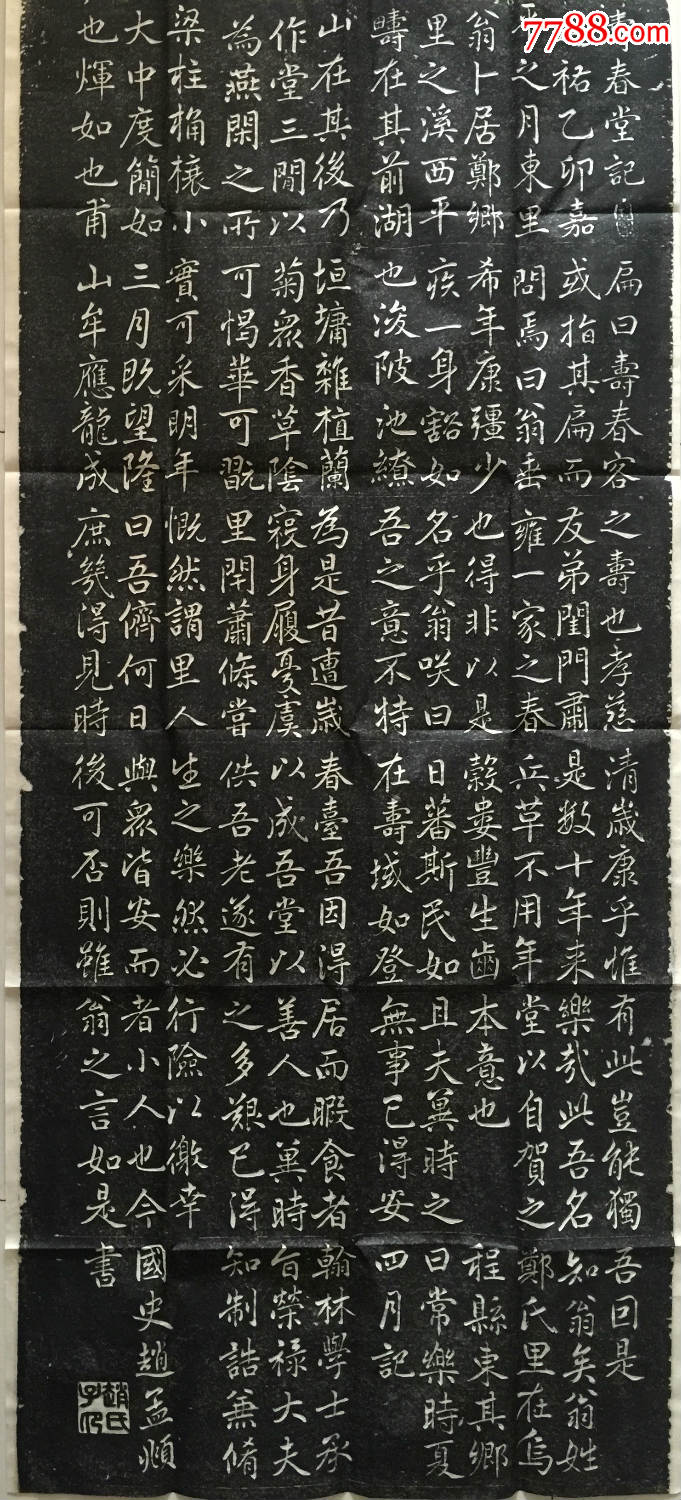 7788.com
壽春堂記
祐乙卯嘉
平之月東里
翁卜居鄭鄉
里之溪西平
疇在其前湖
山在其後乃
作堂三閒以
為燕閑之所
梁柱桷榱小
大中度簡如
也煇如也甫
扁曰壽春容
或指其扁而
問焉曰翁垂
希年康彊少
疾一身豁如
也浚陂池繚
垣墉雜植蘭
菊衆香草陰
可愒華可翫
實可采明年
三月既望隆
山牟應龍成
之壽也孝慈
友弟閨門肅
雍一家之春
也得非以是
名乎翁咲曰
吾之意不特
為是昔遭歲
寖身履憂虞
里閈蕭條嘗
慨然謂里人
曰吾儕何日
庶幾得見時
清歲康乎惟
是数十年来
兵革不用年
穀婁豐生齒
日蕃斯民如
在壽域如登
春臺吾因得
以成吾堂以
供吾老遂有
生之樂然必
與衆皆安而
後可否則雖
有此豈能獨
樂哉此吾名
堂以自賀之
本意也
且夫異時之
無事已得安
居而暇食者
善人也異時
之多艱已得
行險以徼幸
者小人也今
翁之言如是
吾回是
知翁矣翁姓
鄭氏里在烏
程縣東其鄉
曰常樂時夏
四月記
翰林學士承
旨榮祿大夫
知制誥兼脩
國史趙孟頫
書
趙氏子昂